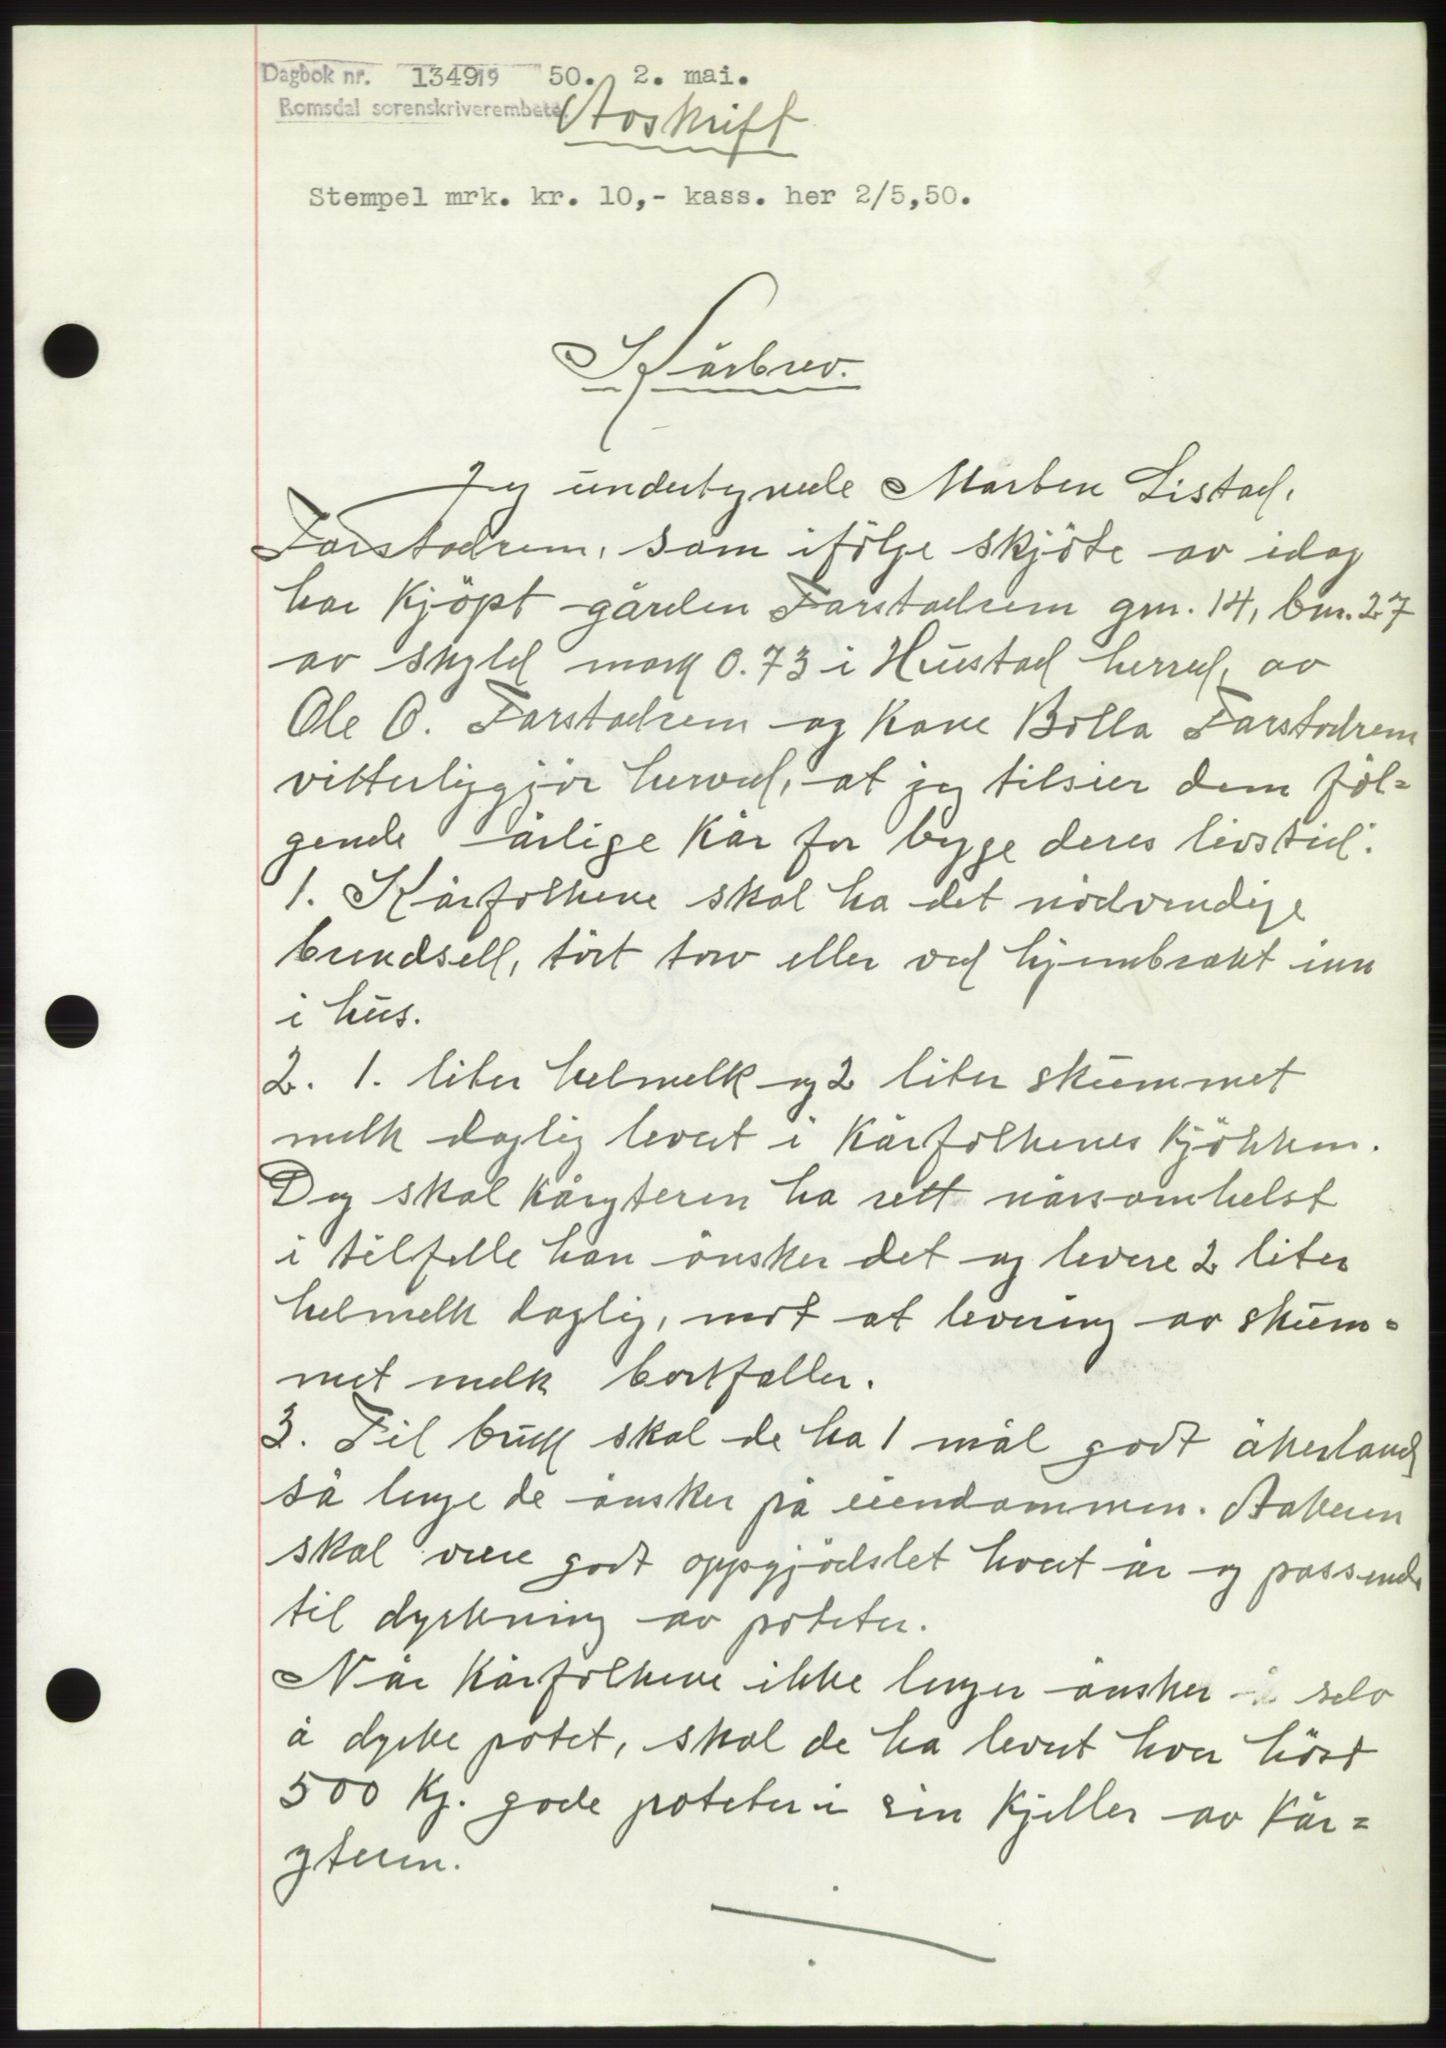 Dagbok nr. 1349 19 50. 2. mai.
Romsdal sorenskriverembete.
Avskrift
Stempel mrk. kr. 10,- kass. her 2/5,50.
Kårbrev.
Jeg undertegnede Marten Listad,
Farstadrem, som ifölge skjöte av idag
har kjöpt gården Farstadrem gnr. 14, bnr. 27
av skyld mark 0.73 i Hustad herred, av
Ole O. Farstadrem og kone Bolla Farstadrem
vitterliggjör herved, at jeg tilsier dem föl-
gende årlige kår for begge deres livstid:
1. Kårfolkene skal ha det nödvendige
brendsell, tört torv eller ved hjembrakt inn
i hus.
2. 1. liter helmelk og 2 liter skummet
melk daglig levert i kårfolkenes kjökken.
Dog skal kåryteren ha rett nårsomhelst
i tilfelle han önsker det og levere 2 liter
helmelk daglig, mot at levering av skum-
met melk bortfaller.
3. Til bruk skal de ha 1 mål godt åkerland
så lenge de önsker på eiendommen. Aakeren
skal vere godt oppgjödslet hvert år og passende
til dyrkning av poteter.
Når kårfolkene ikke lenger önsker selv
å dyrke potet, skal de ha levert hver höst
500 kg. gode poteter i sin kjeller av kår-
yteren.